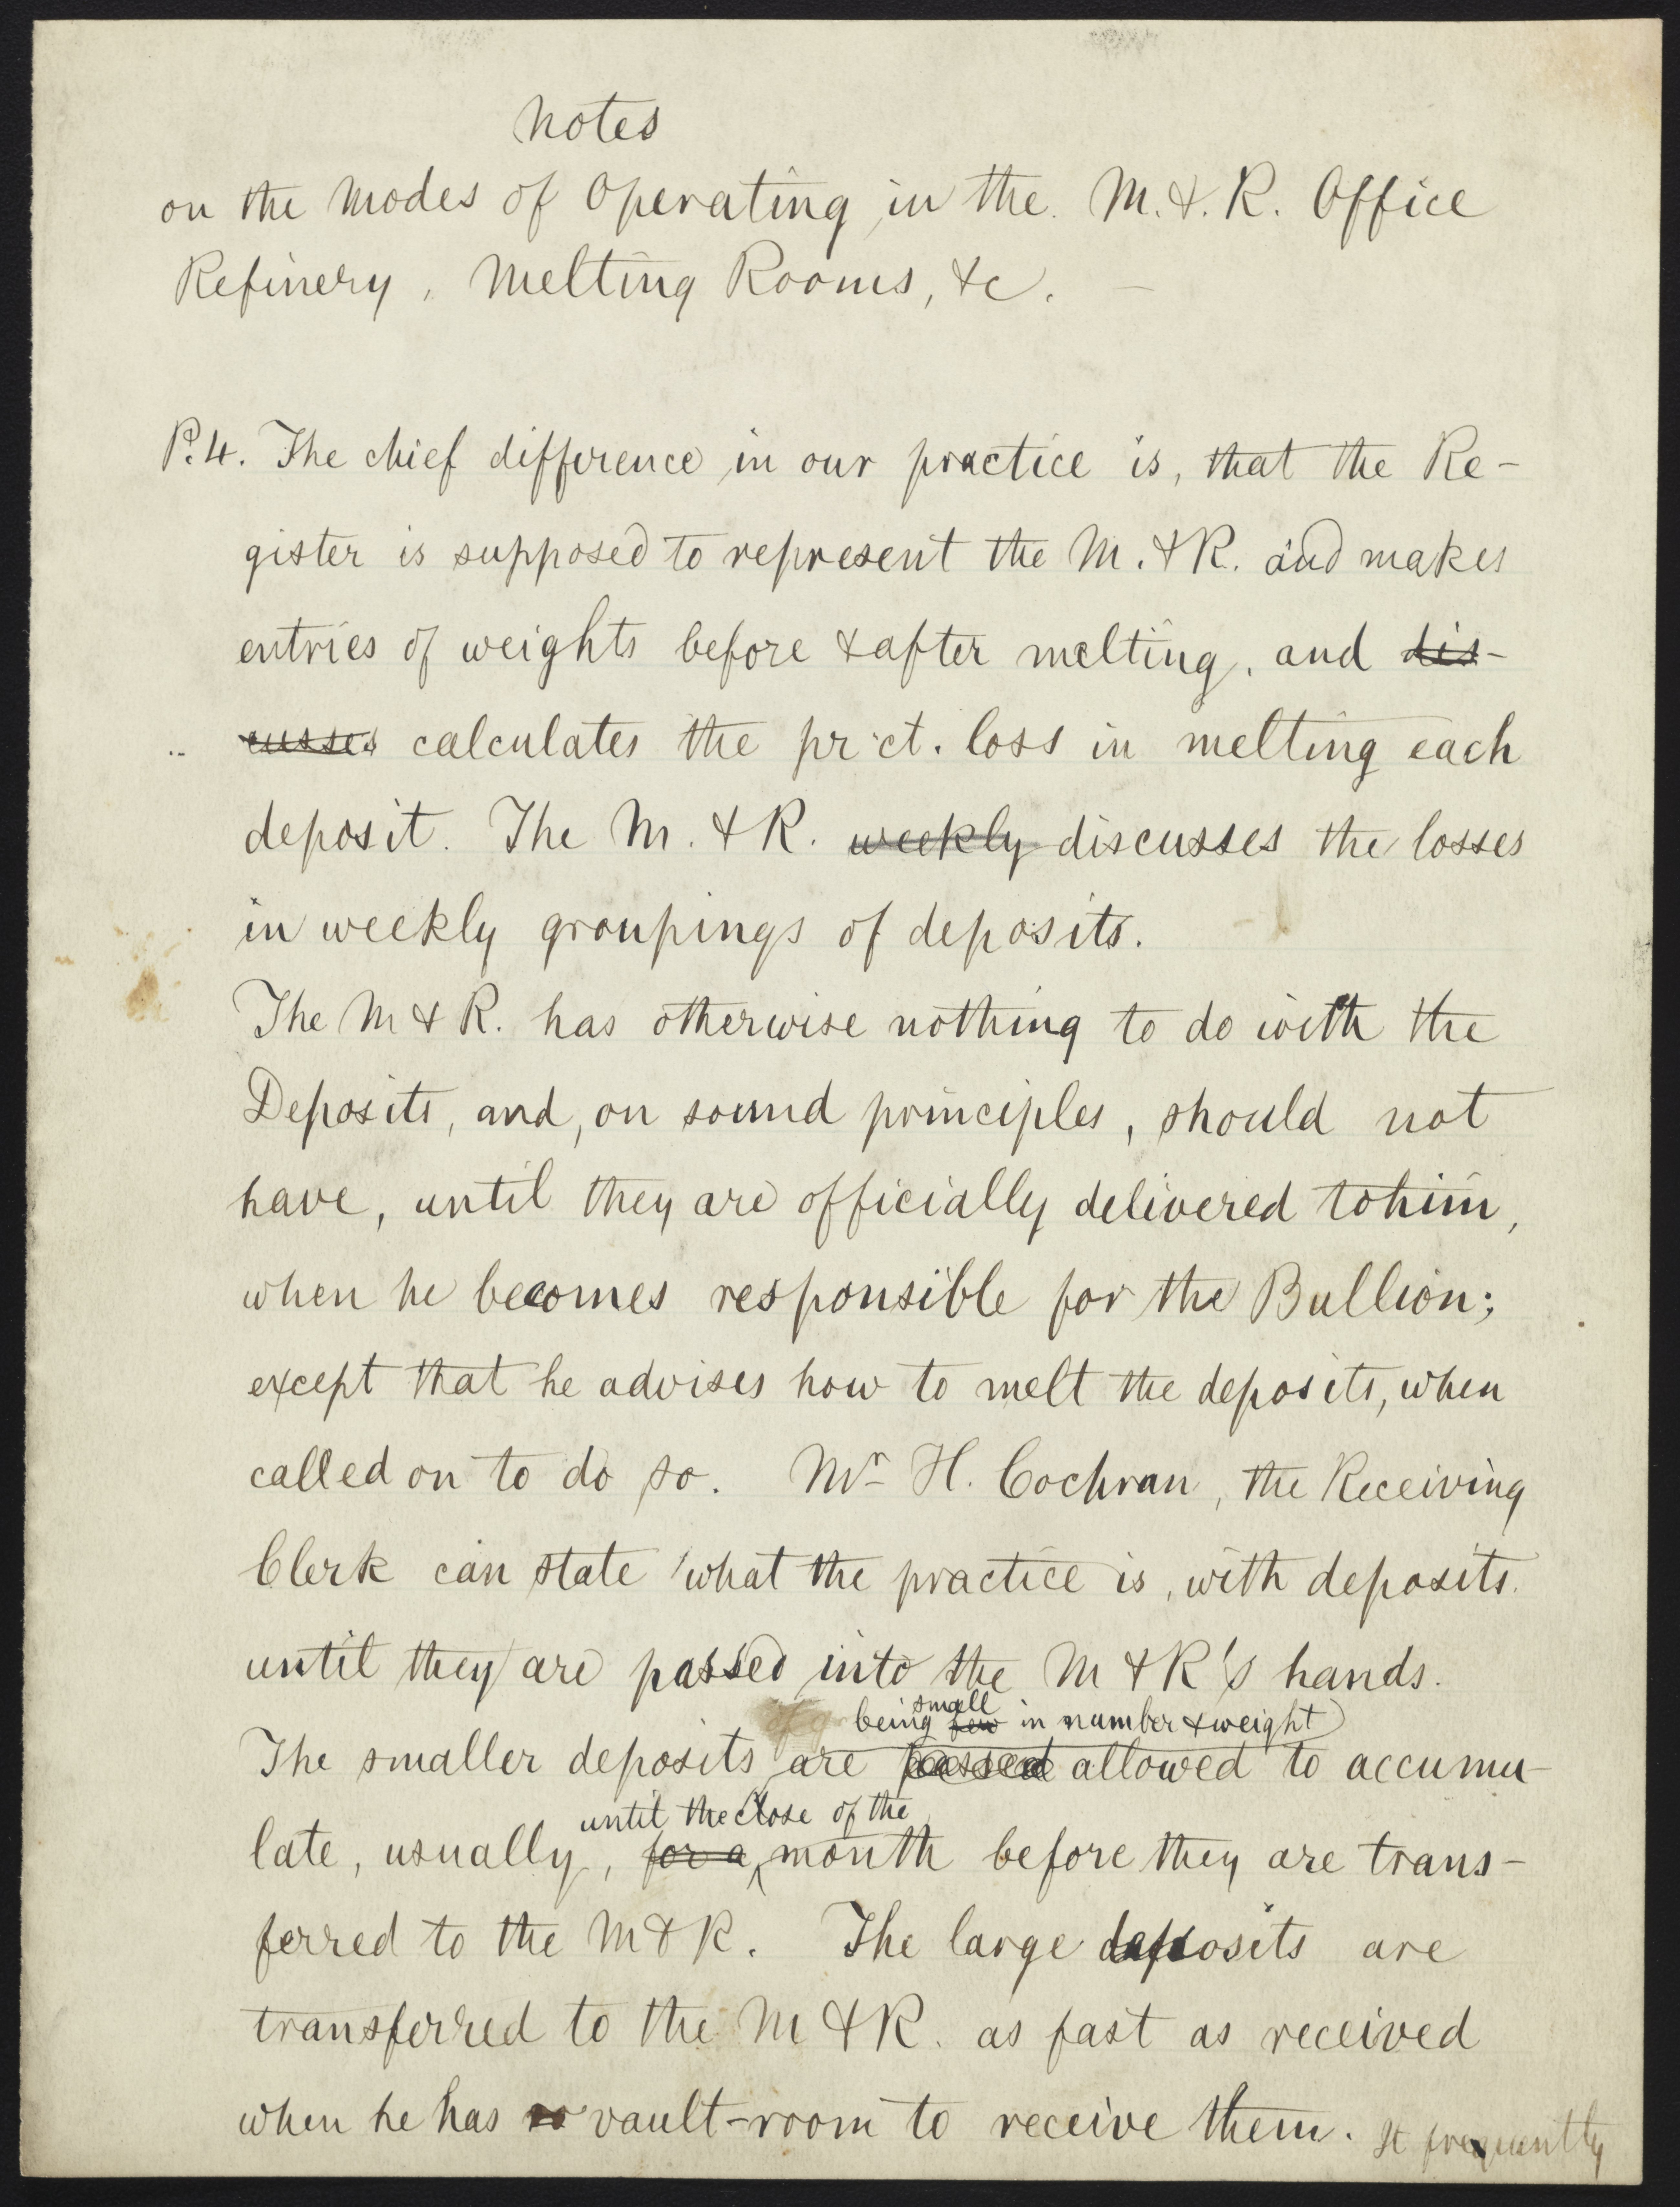 Notes
on the Modes of Operating in the M. & R. Office
Refinery, Melting Rooms, &c. —
P. 4. The chief difference in our practice is, that the Re-
gister is supposed to represent the M. & R. and makes
entries of weights before & after melting, and dis-
cusses calculates the pr ct. loss in melting each
deposit. The M. & R. weekly discusses the losses
in weekly groupings of deposits.
The M & R. has otherwise nothing to do with the
Deposits, and, on sound principles, should not
have, until they are officially delivered to him,
when he becomes responsible for the Bullion;
except that he advises how to melt the deposits, when
called on to do so. Mr H. Cochran, the Receiving
Clerk can state what the practice is, with deposits
until they are passed into the M & R's hands.
small
being few in number & weight)
The smaller deposits are passed allowed to accumu-
until the close of the
late, usually, for a month before they are trans-
ferred to the M & R. The large deposits are
transferred to the M & R. as fast as received
when he has so vault-room to receive them. It frequently